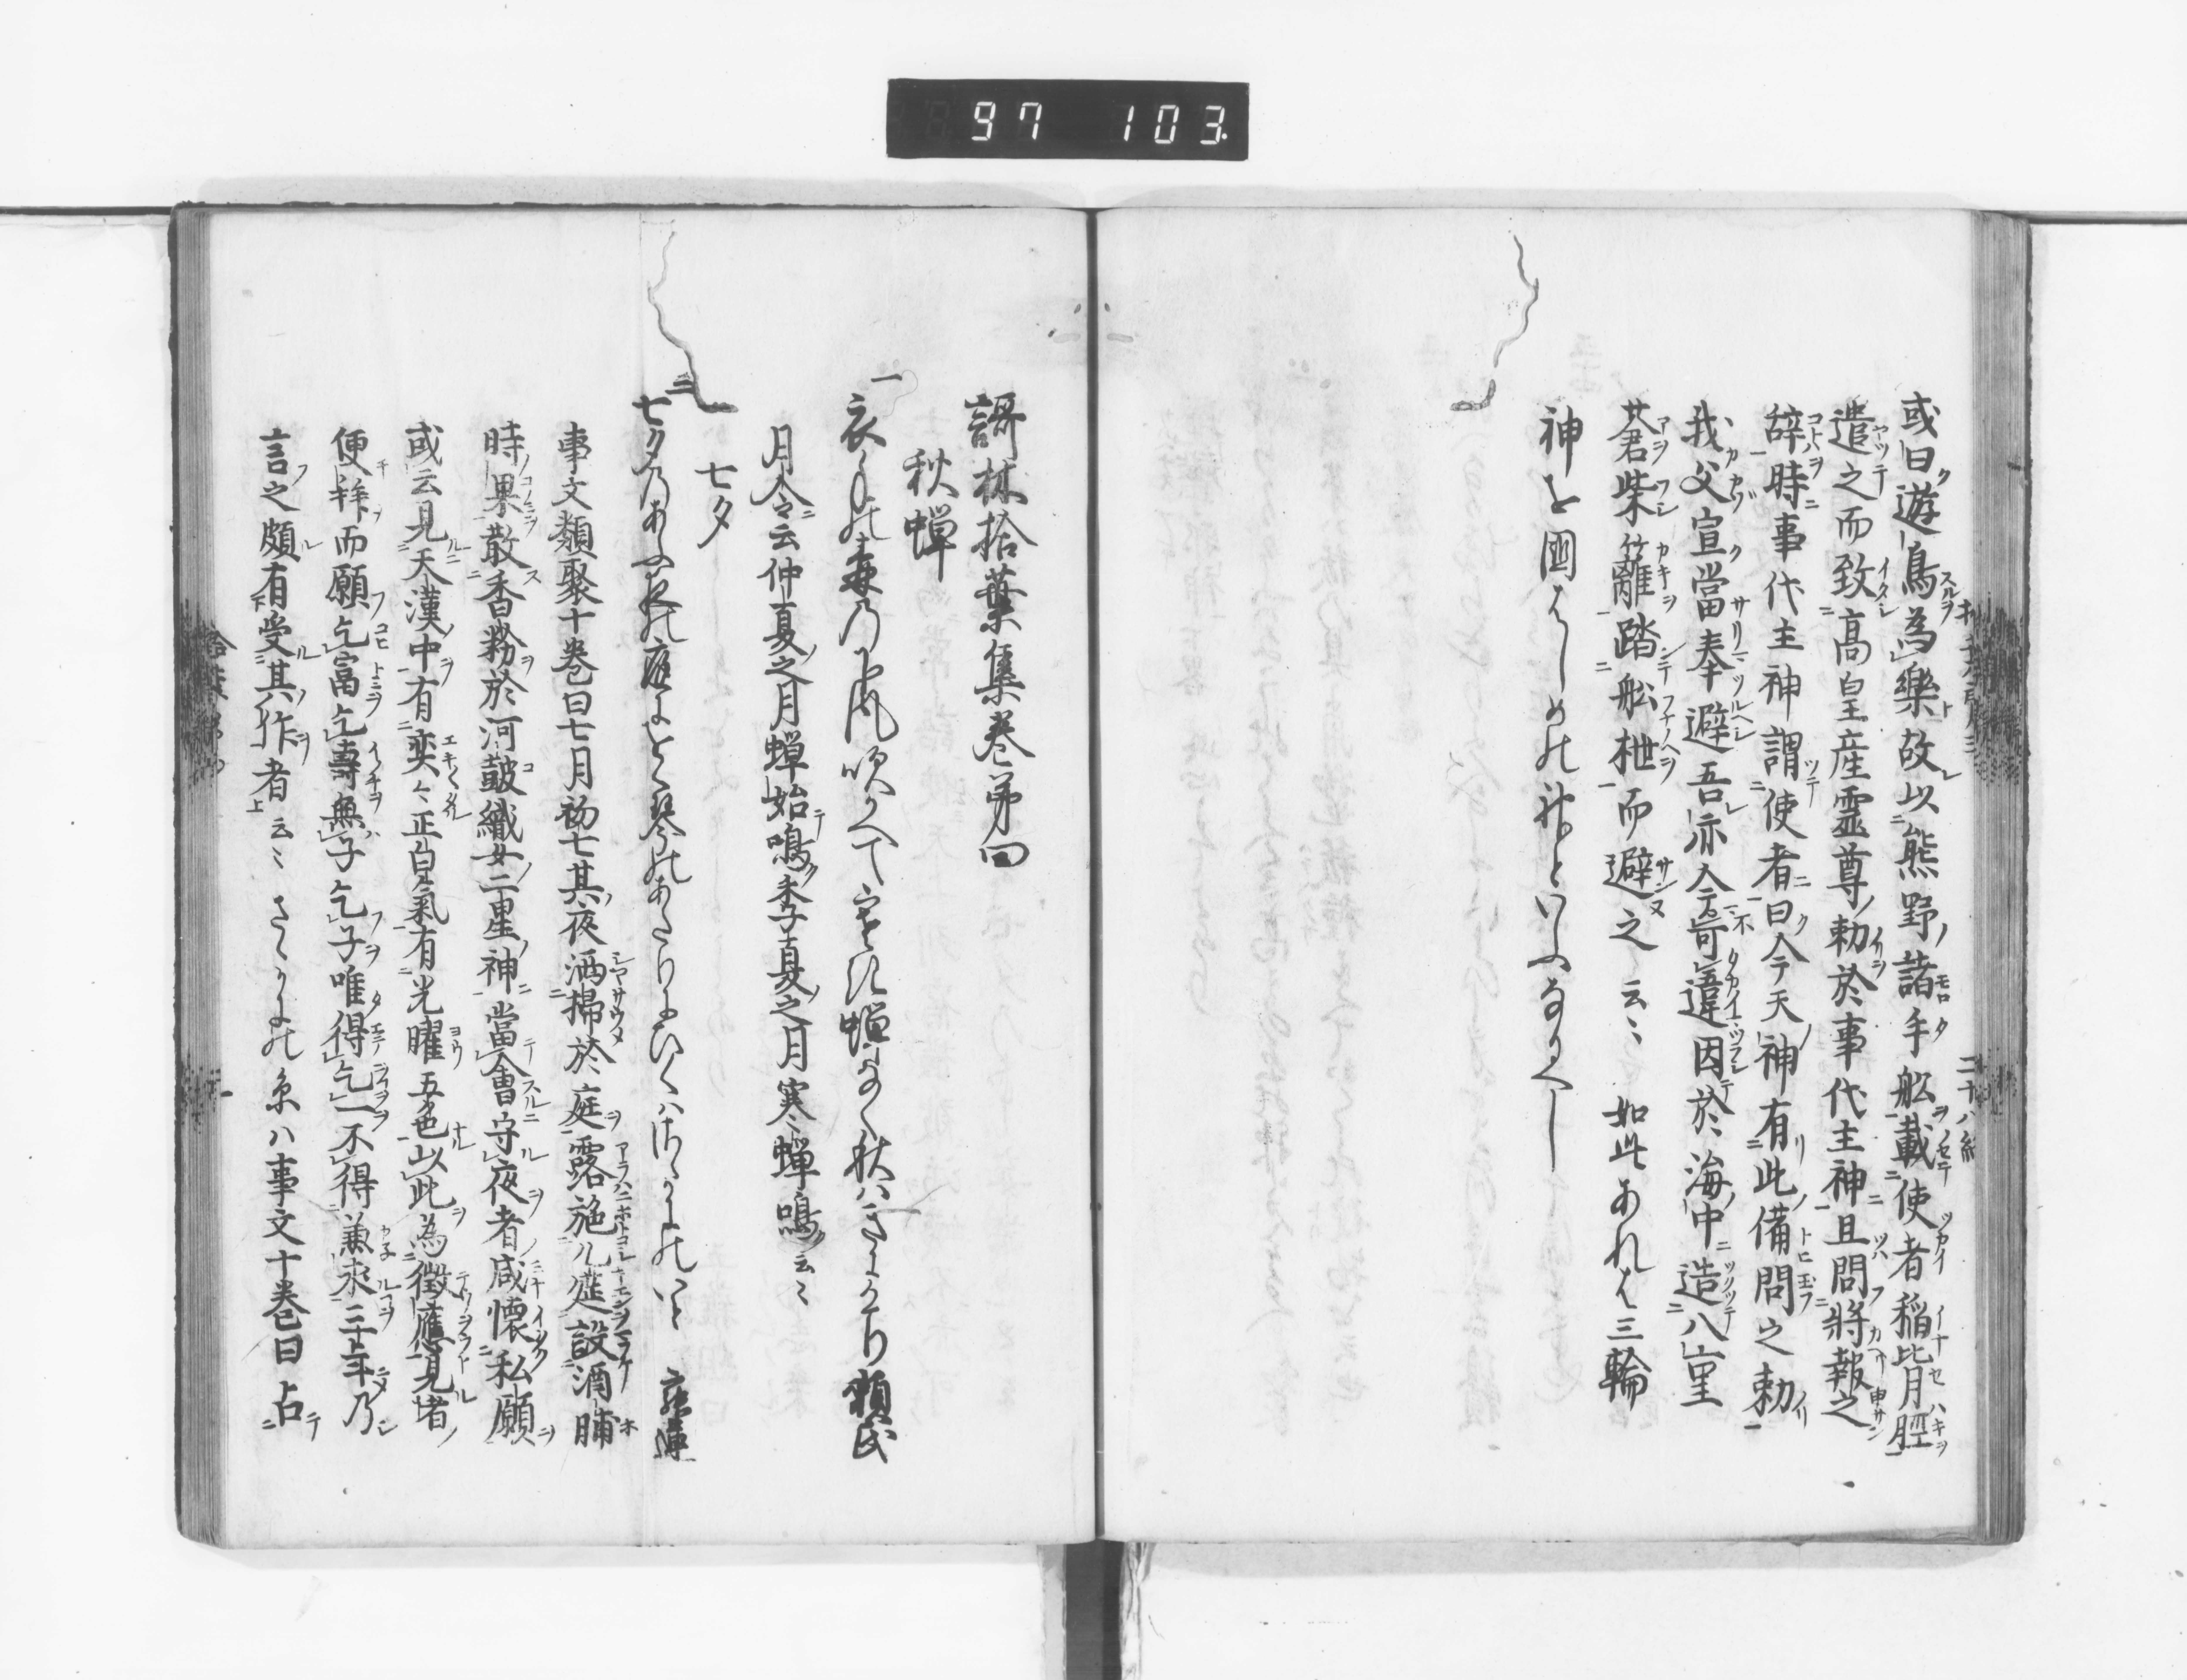 97 103
或曰遊鳥為樂故以熊野諸手舩載使者稲背脛
遣之而致高皇産霊尊勅於事代主神且問將報之
辞時事代主神謂使者曰今天神有此備問之勅
我父宣當奉避吾亦今不可違因於海中造八重
蒼柴籬踏舩枻而避之云〻 如此あれは三輪
神を國はしめの神といふなるへし
謌林拾葉集巻第四
秋蝉
一
衣手の森の下風吹かへて
蝉なく秋はきにけり 頼氏
月令云仲夏之月蝉始鳴季夏之月寒蝉鳴云〻
七夕
二
七夕のあふ夜の庭にをく琴のあたりにひくはさゝかにのいと 寂蓮
事文類聚十巻曰七月初七其夜洒掃於庭露施几筵設酒脯
時果散香粉於河皷織女二星神當會守夜者咸懐私願
或云見天漢中有奕〻正白氣有光曜五色以此為徴應見者
便拜而願乞冨乞壽無子乞子唯得乞一不得兼求三年乃
言之頗有受其祚者云〻 さゝかにの糸ハ事文十巻曰占